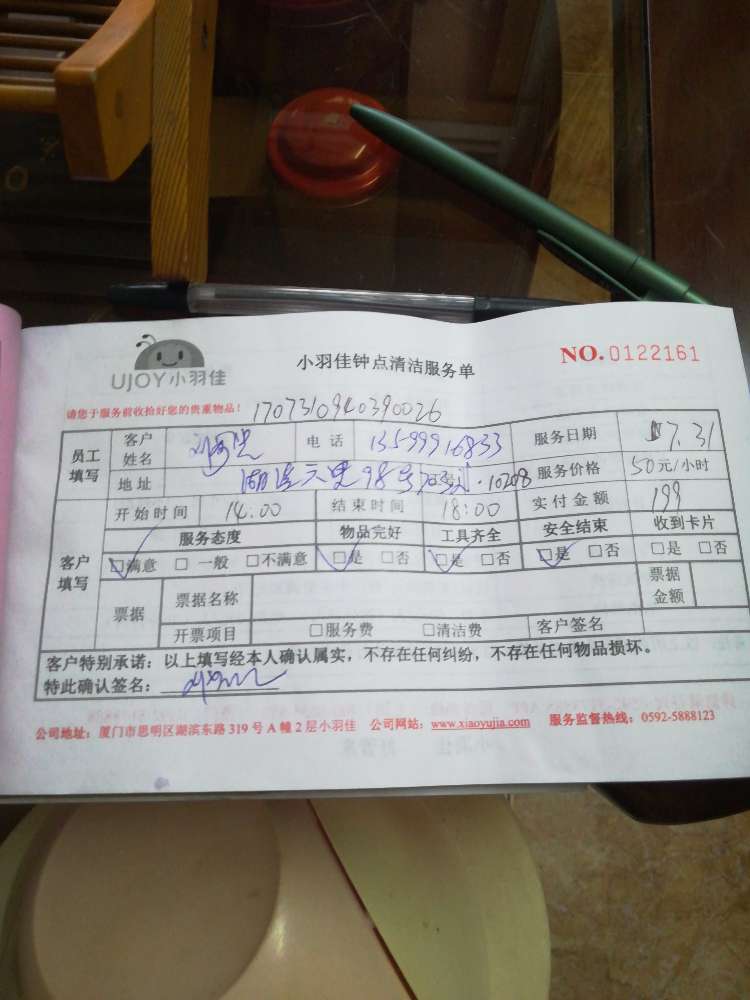 UJOY小羽佳
小羽佳钟点清洁服务单
NO.0122161
请您于服务前收拾好您的贵重物品! 1707310940390026
员工填写 客户姓名 刘 电话 13599916833 服务日期 7.31
地址 98号 10208 服务价格 50元/小时
客户填写 开始时间 14:00 结束时间 18:00 实付金额 199
服务态度 物品完好 工具齐全 安全结束 收到卡片
□满意 □一般 □不满意 □是 □否 □是 □否 □是 □否 □是 □否
票据 票据名称 票据金额
开票项目 □服务费 □清洁费 客户签名
客户特别承诺:以上填写经本人确认属实,不存在任何纠纷,不存在任何物品损坏。
特此确认签名:
公司地址:厦门市思明区湖滨东路319号A幢2层小羽佳 公司网站:www.xiaoyujia.com 服务监督热线:0592-5888123